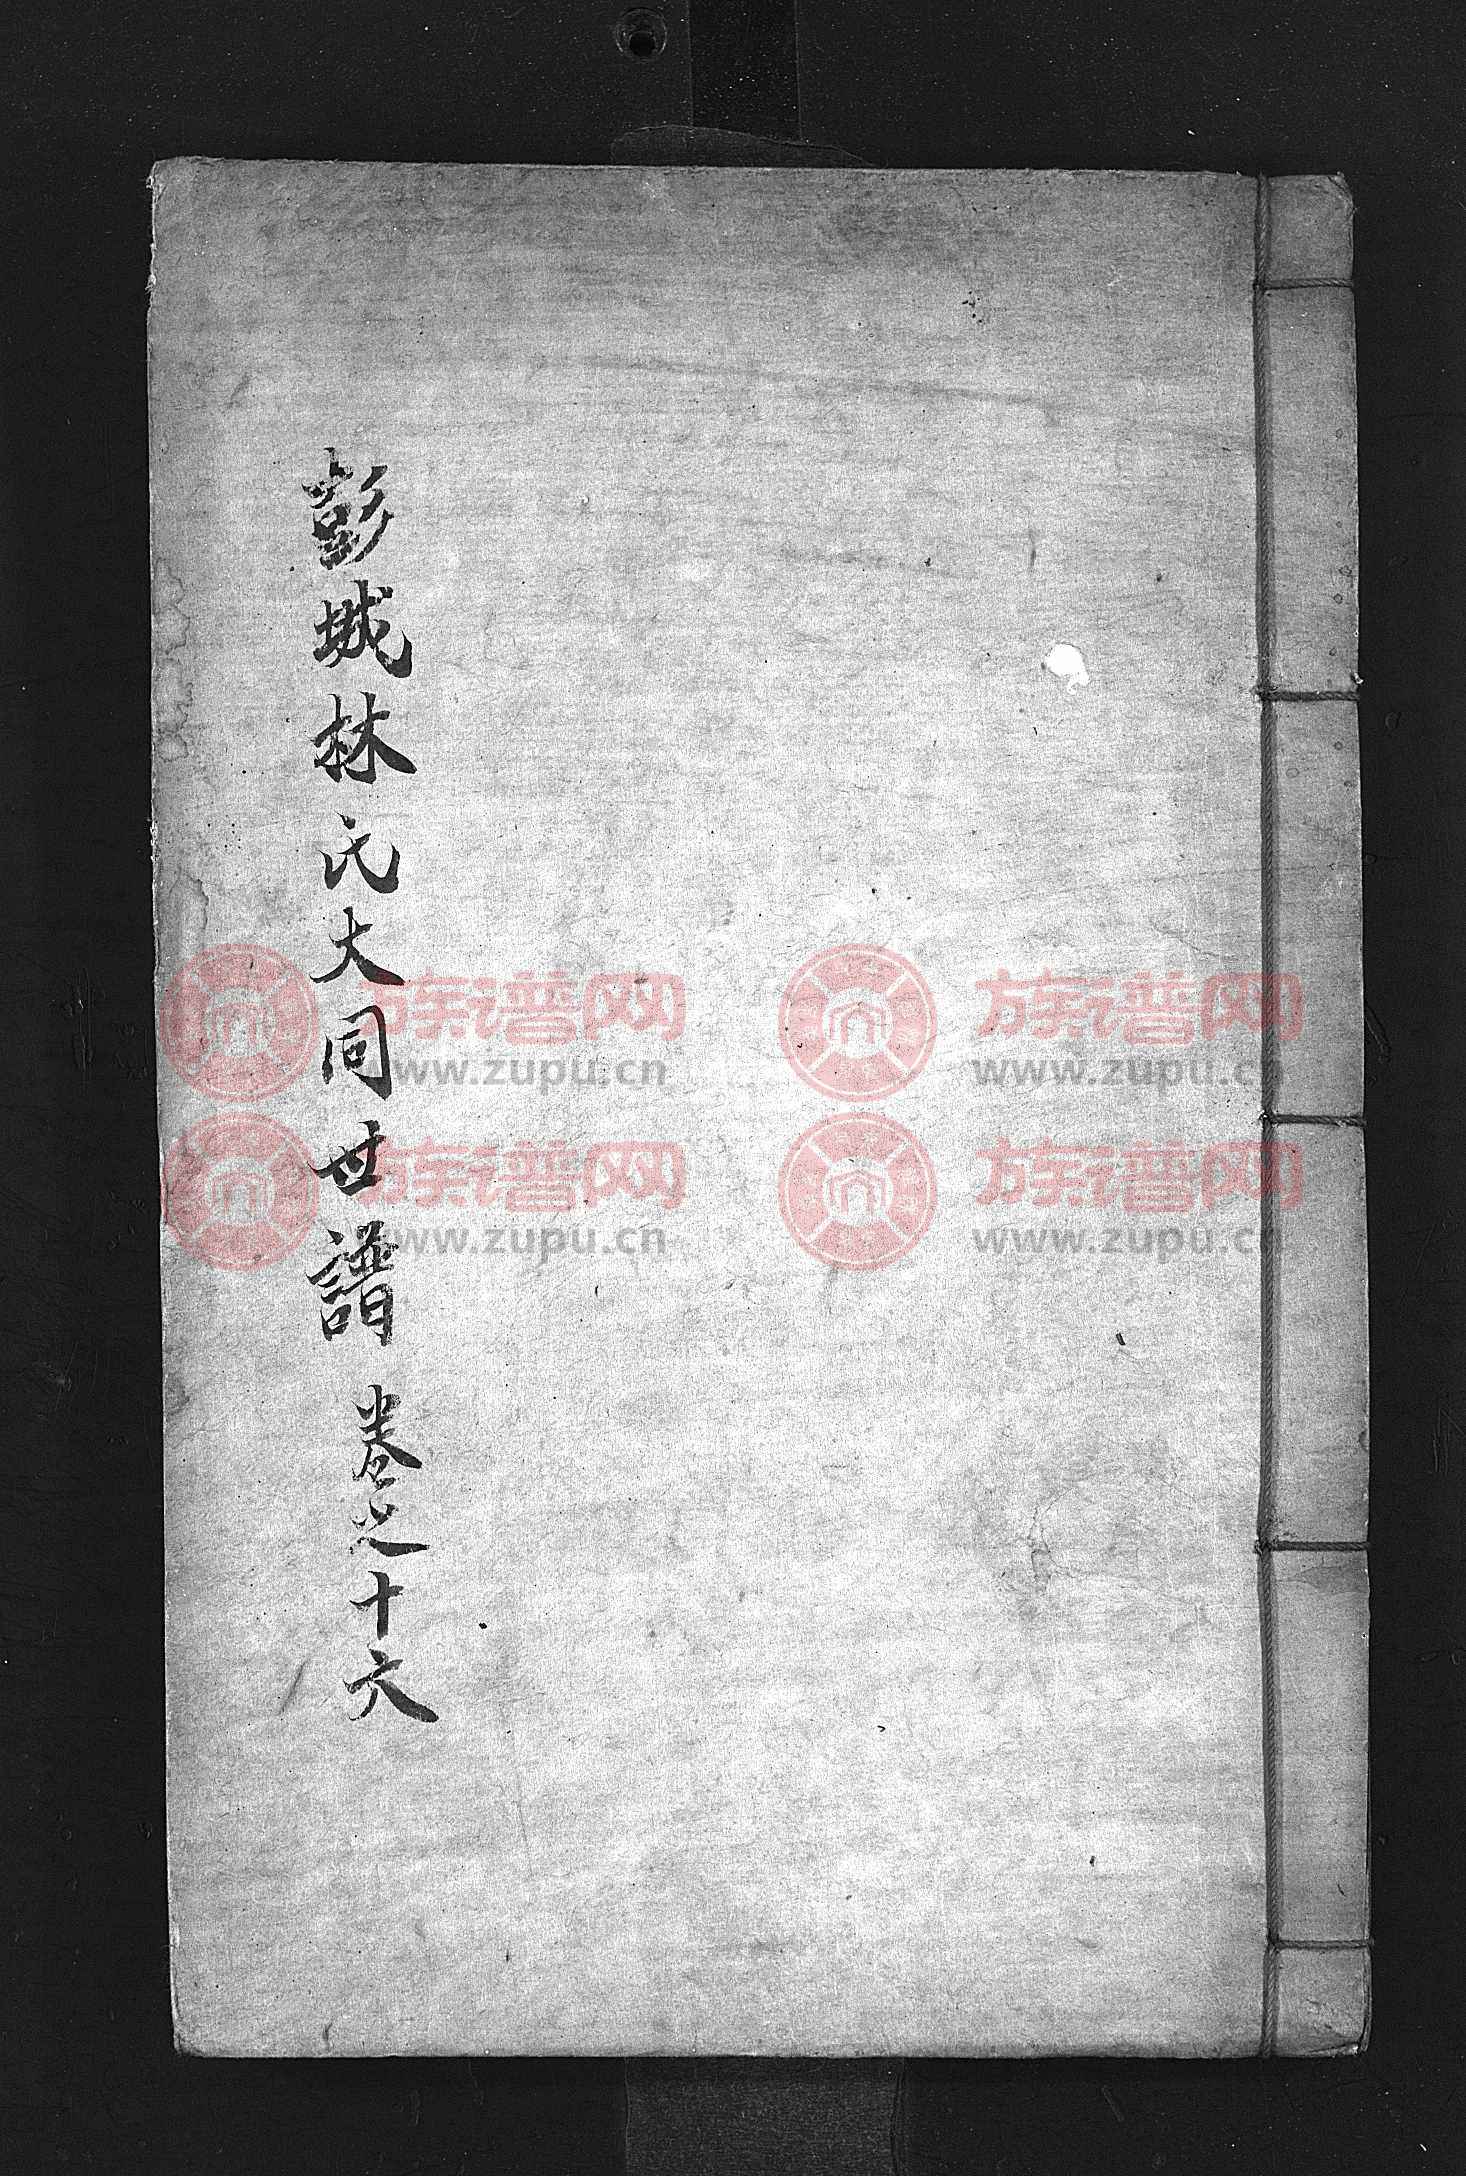 彭城林氏大同世譜 卷之十六
族谱网 族谱网
www.zupu.cn www.zupu.cn
族谱网 族谱网
www.zupu.cn www.zupu.cn